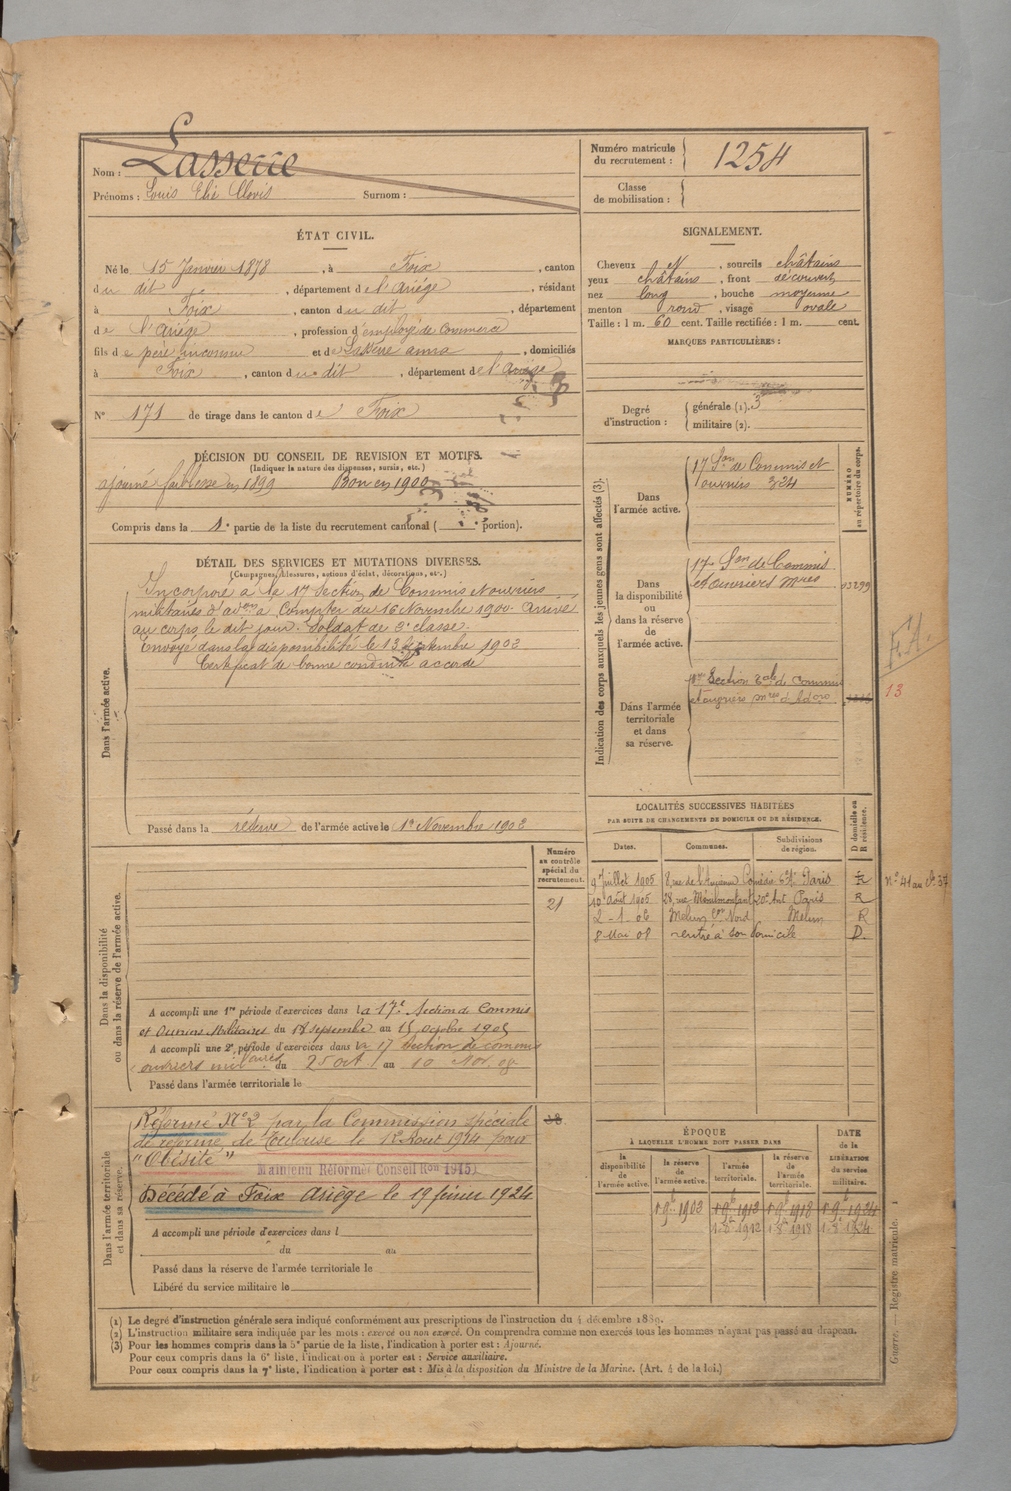 Nom : Lasserre
Prénoms : Louis Elie Clovis Surnom :
Numéro matricule du recrutement : 1254
Classe de mobilisation :
ÉTAT CIVIL.
Né le 15 Janvier 1878, à Foix, canton
du dit, département de l'Ariége, résidant
à Foix, canton du dit, département
de l'Ariége, profession d'employé de Commerce
fils de père inconnu et de Lasserre anna, domiciliés
à Foix, canton du dit, département de l'Ariége
N° 171 de tirage dans le canton de Foix
SIGNALEMENT.
Cheveux N, sourcils châtains
yeux châtains, front découvert
nez long, bouche moyenne
menton rond, visage ovale
Taille : 1 m. 60 cent. Taille rectifiée : 1 m. cent.
MARQUES PARTICULIÈRES :
Degré d'instruction : générale (1). 3
militaire (2).
DÉCISION DU CONSEIL DE REVISION ET MOTIFS.
(Indiquer la nature des dispenses, sursis, etc.)
ajourné faiblesse en 1899 Bon en 1900
Compris dans la 1e partie de la liste du recrutement cantonal ( portion).
DÉTAIL DES SERVICES ET MUTATIONS DIVERSES.
(Campagnes, blessures, actions d'éclat, décorations, etc.)
Dans l'armée active.
Incorporé à la 17 Section de Commis et ouvriers
militaires d'adon à Compter du 16 Novembre 1900. Arrivé
au corps le dit jour. Soldat de 2e classe.
Envoyé dans la disponibilité le 13 Septembre 1902
Certificat de bonne conduite accordé
Passé dans la réserve de l'armée active le 1er Novembre 1902
Indication des corps auxquels les jeunes gens sont affectés (3).
NUMÉRO au répertoire du corps.
Dans l'armée active.
17 Son de Commis et
ouvriers 324
Dans la disponibilité ou dans la réserve de l'armée active.
17e Son de Commis
et ouvriers Mres
03299
Dans l'armée territoriale et dans sa réserve.
F.A.
13
LOCALITÉS SUCCESSIVES HABITÉES
PAR SUITE DE CHANGEMENTS DE DOMICILE OU DE RÉSIDENCE.
Dates. Communes. Subdivisions de région. D domicile ou R résidence.
9 Juillet 1905 8, rue de l'Ancienne Comédie 6e At Paris R
10 Août 1905 28, rue Ménilmontant 20e Art Paris R
2-1-06 Melun Melun R
8 Mai 08 rentré à son domicile D.
Dans la disponibilité ou dans la réserve de l'armée active.
Numéro au contrôle spécial du recrutement.
21
A accompli une 1re période d'exercices dans la 17e Section de Commis
et Ouvriers Militaires du 18 septembre au 15 octobre 1905
A accompli une 2e période d'exercices dans la 17 Section de commis
ouvriers militaires du 25 oct au 10 Nov. 08
Passé dans l'armée territoriale le
Dans l'armée territoriale et dans sa réserve.
Réformé N° 2 par la Commission spéciale
de réforme de Toulouse le 12 Août 1914 pour
"Obésité"
Maintenu Réformé( Conseil Ron 1915)
Décédé à Foix Ariège le 19 février 1924
A accompli une période d'exercices dans l
du au
Passé dans la réserve de l'armée territoriale le
Libéré du service militaire le
ÉPOQUE
A LAQUELLE L'HOMME DOIT PASSER DANS
DATE de la LIBÉRATION du service militaire.
la disponibilité de l'armée active. la réserve de l'armée active. l'armée territoriale. la réserve de l'armée territoriale.
1902 1912 1918 1924
1912 1918 1924
(1) Le degré d'instruction générale sera indiqué conformément aux prescriptions de l'instruction du 4 décembre 1889.
(2) L'instruction militaire sera indiquée par les mots : exercé ou non exercé. On comprendra comme non exercés tous les hommes n'ayant pas passé au drapeau.
(3) Pour les hommes compris dans la 5e partie de la liste, l'indication à porter est : Ajourné.
Pour ceux compris dans la 6e liste, l'indication à porter est : Service auxiliaire.
Pour ceux compris dans la 7e liste, l'indication à porter est : Mis à la disposition du Ministre de la Marine. (Art. 4 de la loi.)
Guerre. — Registre matricule.